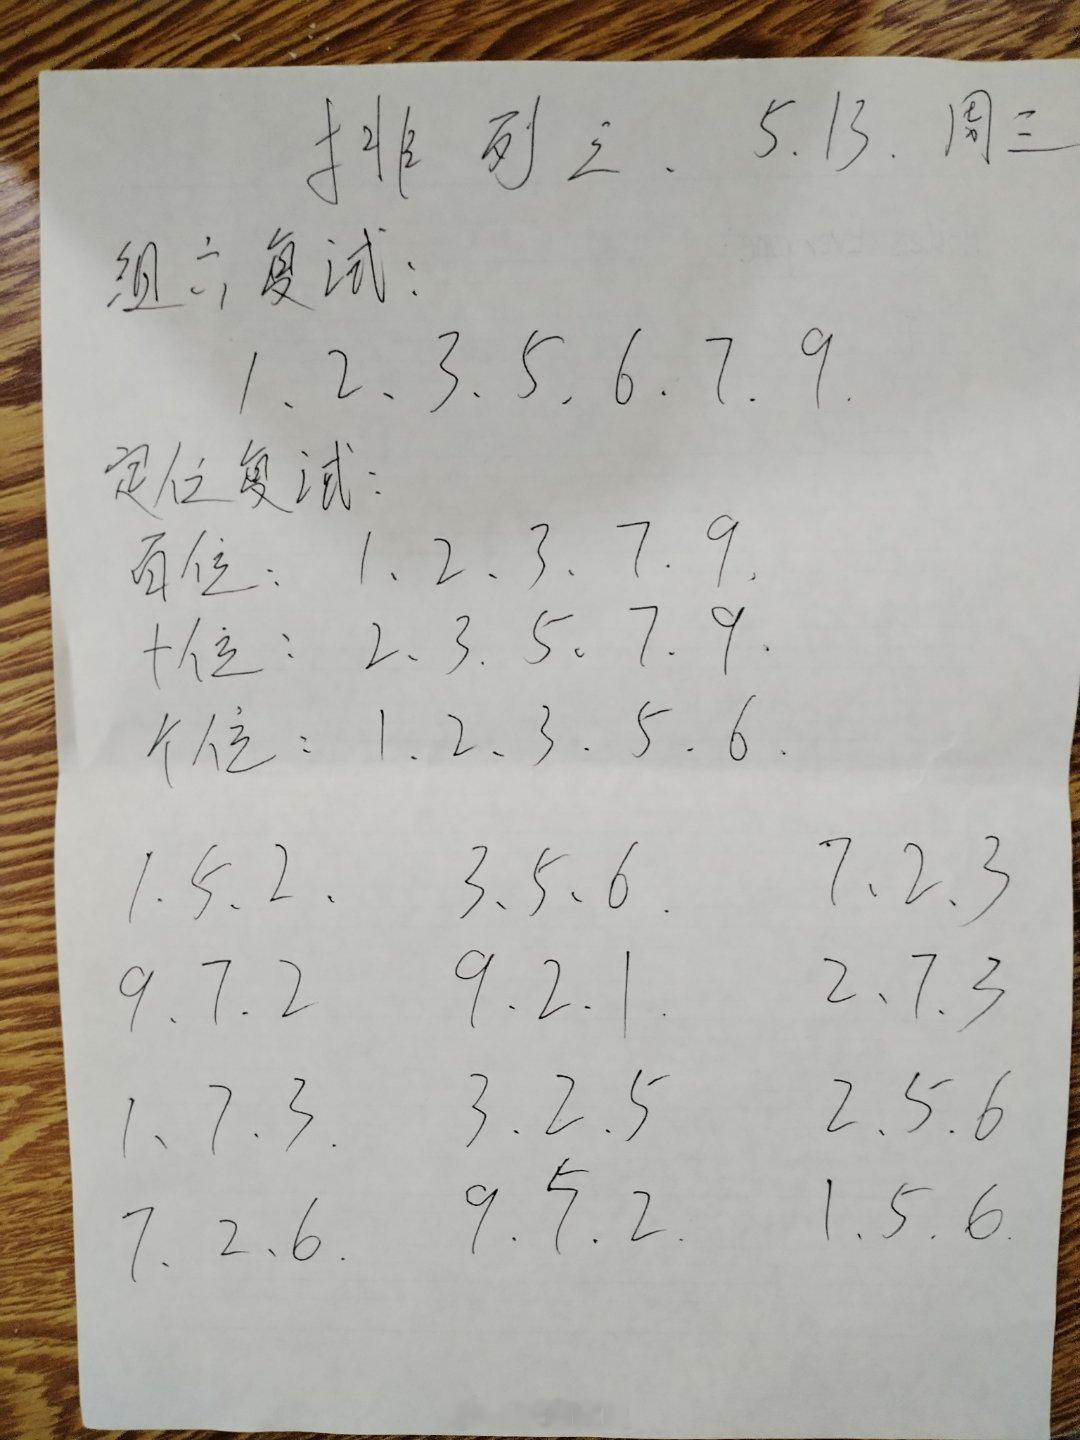 排列三. 5.13. 周三
组六复试:
1、2、3、5、6.7.9.
定位复试:
百位: 1、2、3、7.9.
十位: 2、3.5、7.9.
个位: 1.2、3.5.6.
1.5.2. 3、5、6. 7、2.3
9.7.2 9.2.1. 2、7.3
1、7.3. 3.2.5 2.5.6
7.2、6. 9.5.2. 1.5.6.